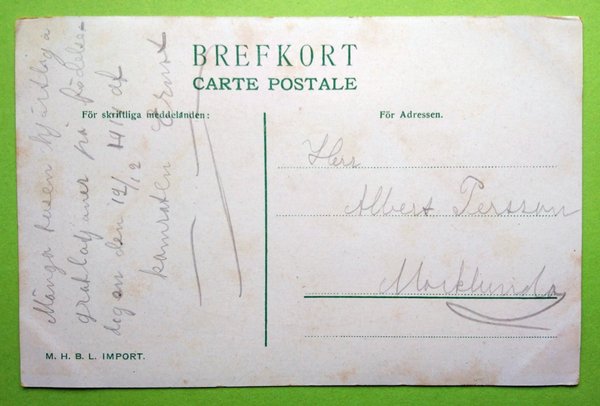 BREFKORT
CARTE POSTALE
För skriftliga meddelanden:
För Adressen.
Många tusen hjärtliga
gratlatjoner på födelse-
dagen den 12/12 1914 af
kamraten Ernst
Herr
Albert Persson
Marklunda
M. H. B. L. IMPORT.